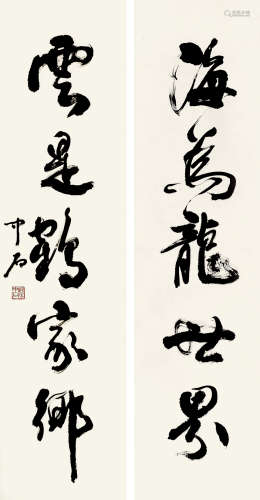 海为龍世界
雲是鶴家鄉
中石